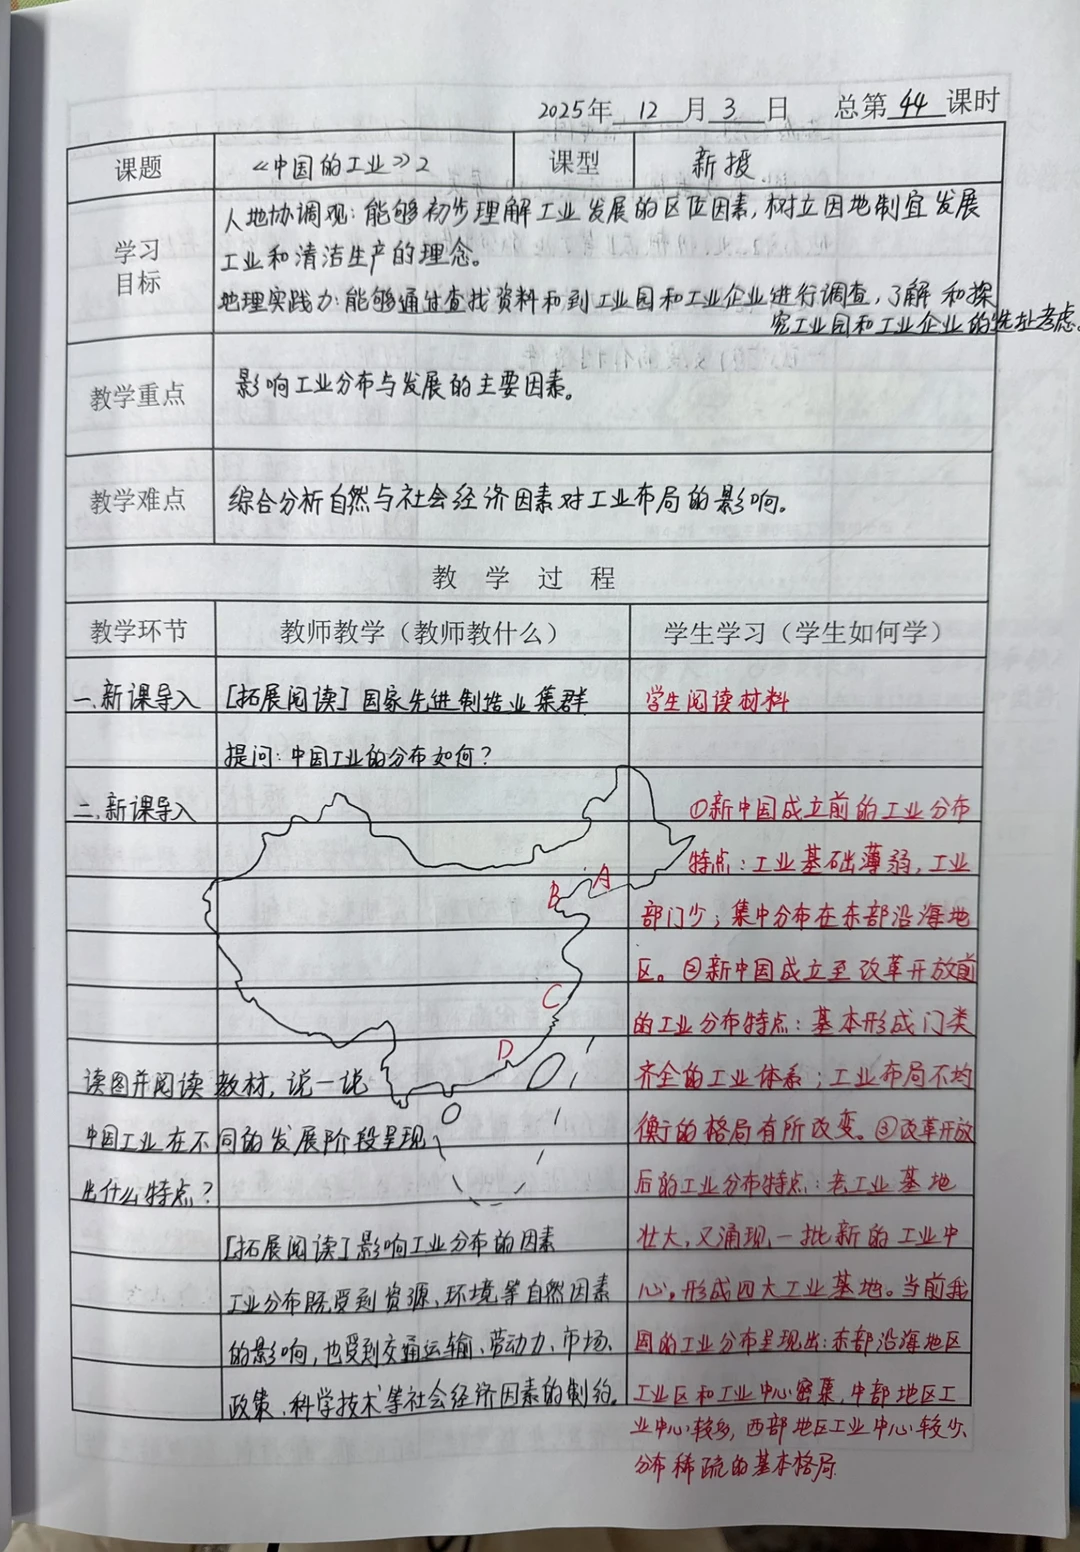 2025年 12 月 3 日 总第 44 课时
课题 《中国的工业》2 课型 新授
学习目标
人地协调观：能够初步理解工业发展的区位因素，树立因地制宜发展
工业和清洁生产的理念。
地理实践力：能够通过查找资料和到工业园和工业企业进行调查，了解和探
究工业园和工业企业的选址考虑。
教学重点 影响工业分布与发展的主要因素。
教学难点 综合分析自然与社会经济因素对工业布局的影响。
教 学 过 程
教学环节 教师教学（教师教什么） 学生学习（学生如何学）
一、新课导入 [拓展阅读] 国家先进制造业集群 学生阅读材料
提问：中国工业的分布如何？
二、新课导入
A
B
C
D
读图并阅读教材，说一说
中国工业在不同的发展阶段呈现
出什么特点？
[拓展阅读] 影响工业分布的因素
工业分布既受到资源、环境等自然因素
的影响，也受到交通运输、劳动力、市场、
政策、科学技术等社会经济因素的制约。
①新中国成立前的工业分布
特点：工业基础薄弱，工业
部门少；集中分布在东部沿海地
区。②新中国成立至改革开放前
的工业分布特点：基本形成门类
齐全的工业体系；工业布局不均
衡的格局有所改变。③改革开放
后的工业分布特点：老工业基地
壮大，又涌现一批新的工业中
心，形成四大工业基地。当前我
国的工业分布呈现出：东部沿海地区
工业区和工业中心密集，中部地区工
业中心较多，西部地区工业中心较少、
分布稀疏的基本格局